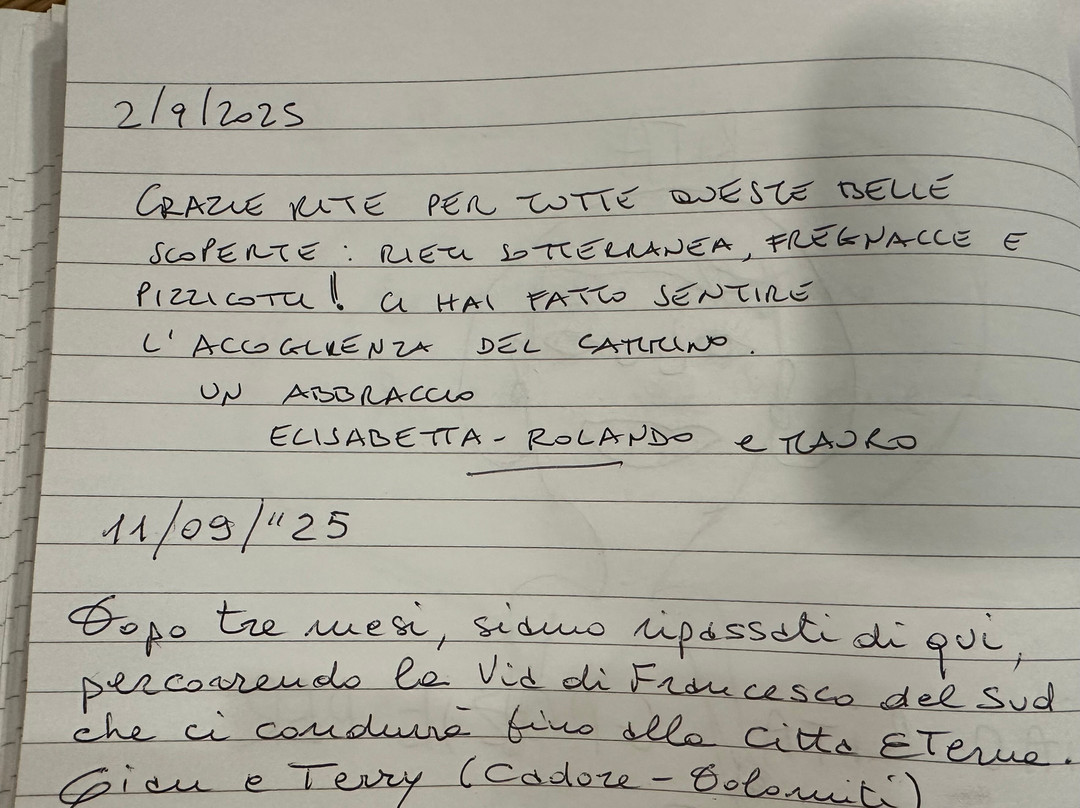 2/9/2025
GRAZIE RITE PER TUTTE QUESTE BELLE
SCOPERTE : RIETI SOTTERRANEA, FREGNACCE E
PIZZICOTTI! CI HAI FATTO SENTIRE
L'ACCOGLIENZA DEL CAMMINO.
UN ABBRACCIO
ELISABETTA - ROLANDO e MAURO
11/09/"25
Dopo tre mesi, siamo ripassati di qui,
percorrendo la Via di Francesco del Sud
che ci condurrà fino alla Città ETerna.
Gian e Terry (Cadore - Dolomiti)